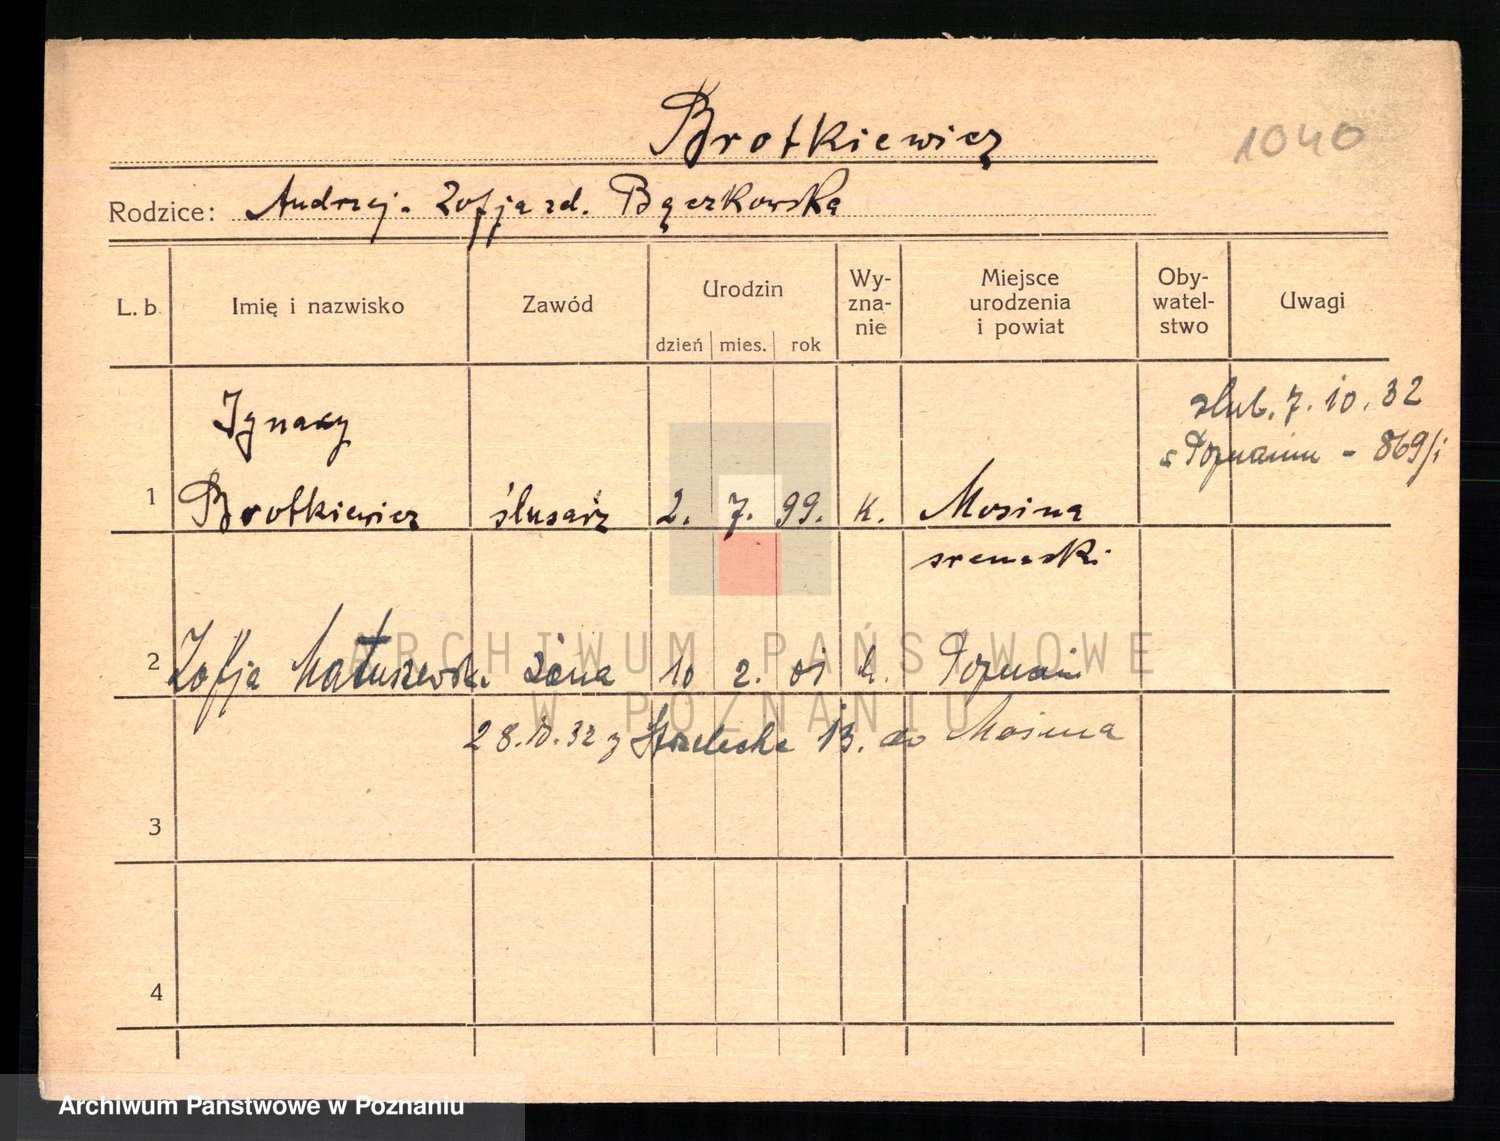 Brotkiewicz
1040
Rodzice: Andrzej. Zofja zd. Bączkowska
L. b. Imię i nazwisko Zawód Urodzin dzień mies. rok Wy-zna-nie Miejsce urodzenia i powiat Oby-watel-stwo Uwagi
ślub. 7.10.32
Poznaniu - 869/i
Ignacy
1 Brotkiewicz ślusarz 2. 7. 99. k. Mosina
sremski
2 Zofja Matuszewska żona 10 2. 01 k. Poznań
28.10.32 z Strzelecka 13. do Mosina
3
4
ARCHIWUM PAŃSTWOWE
W POZNANIU
Archiwum Państwowe w Poznaniu